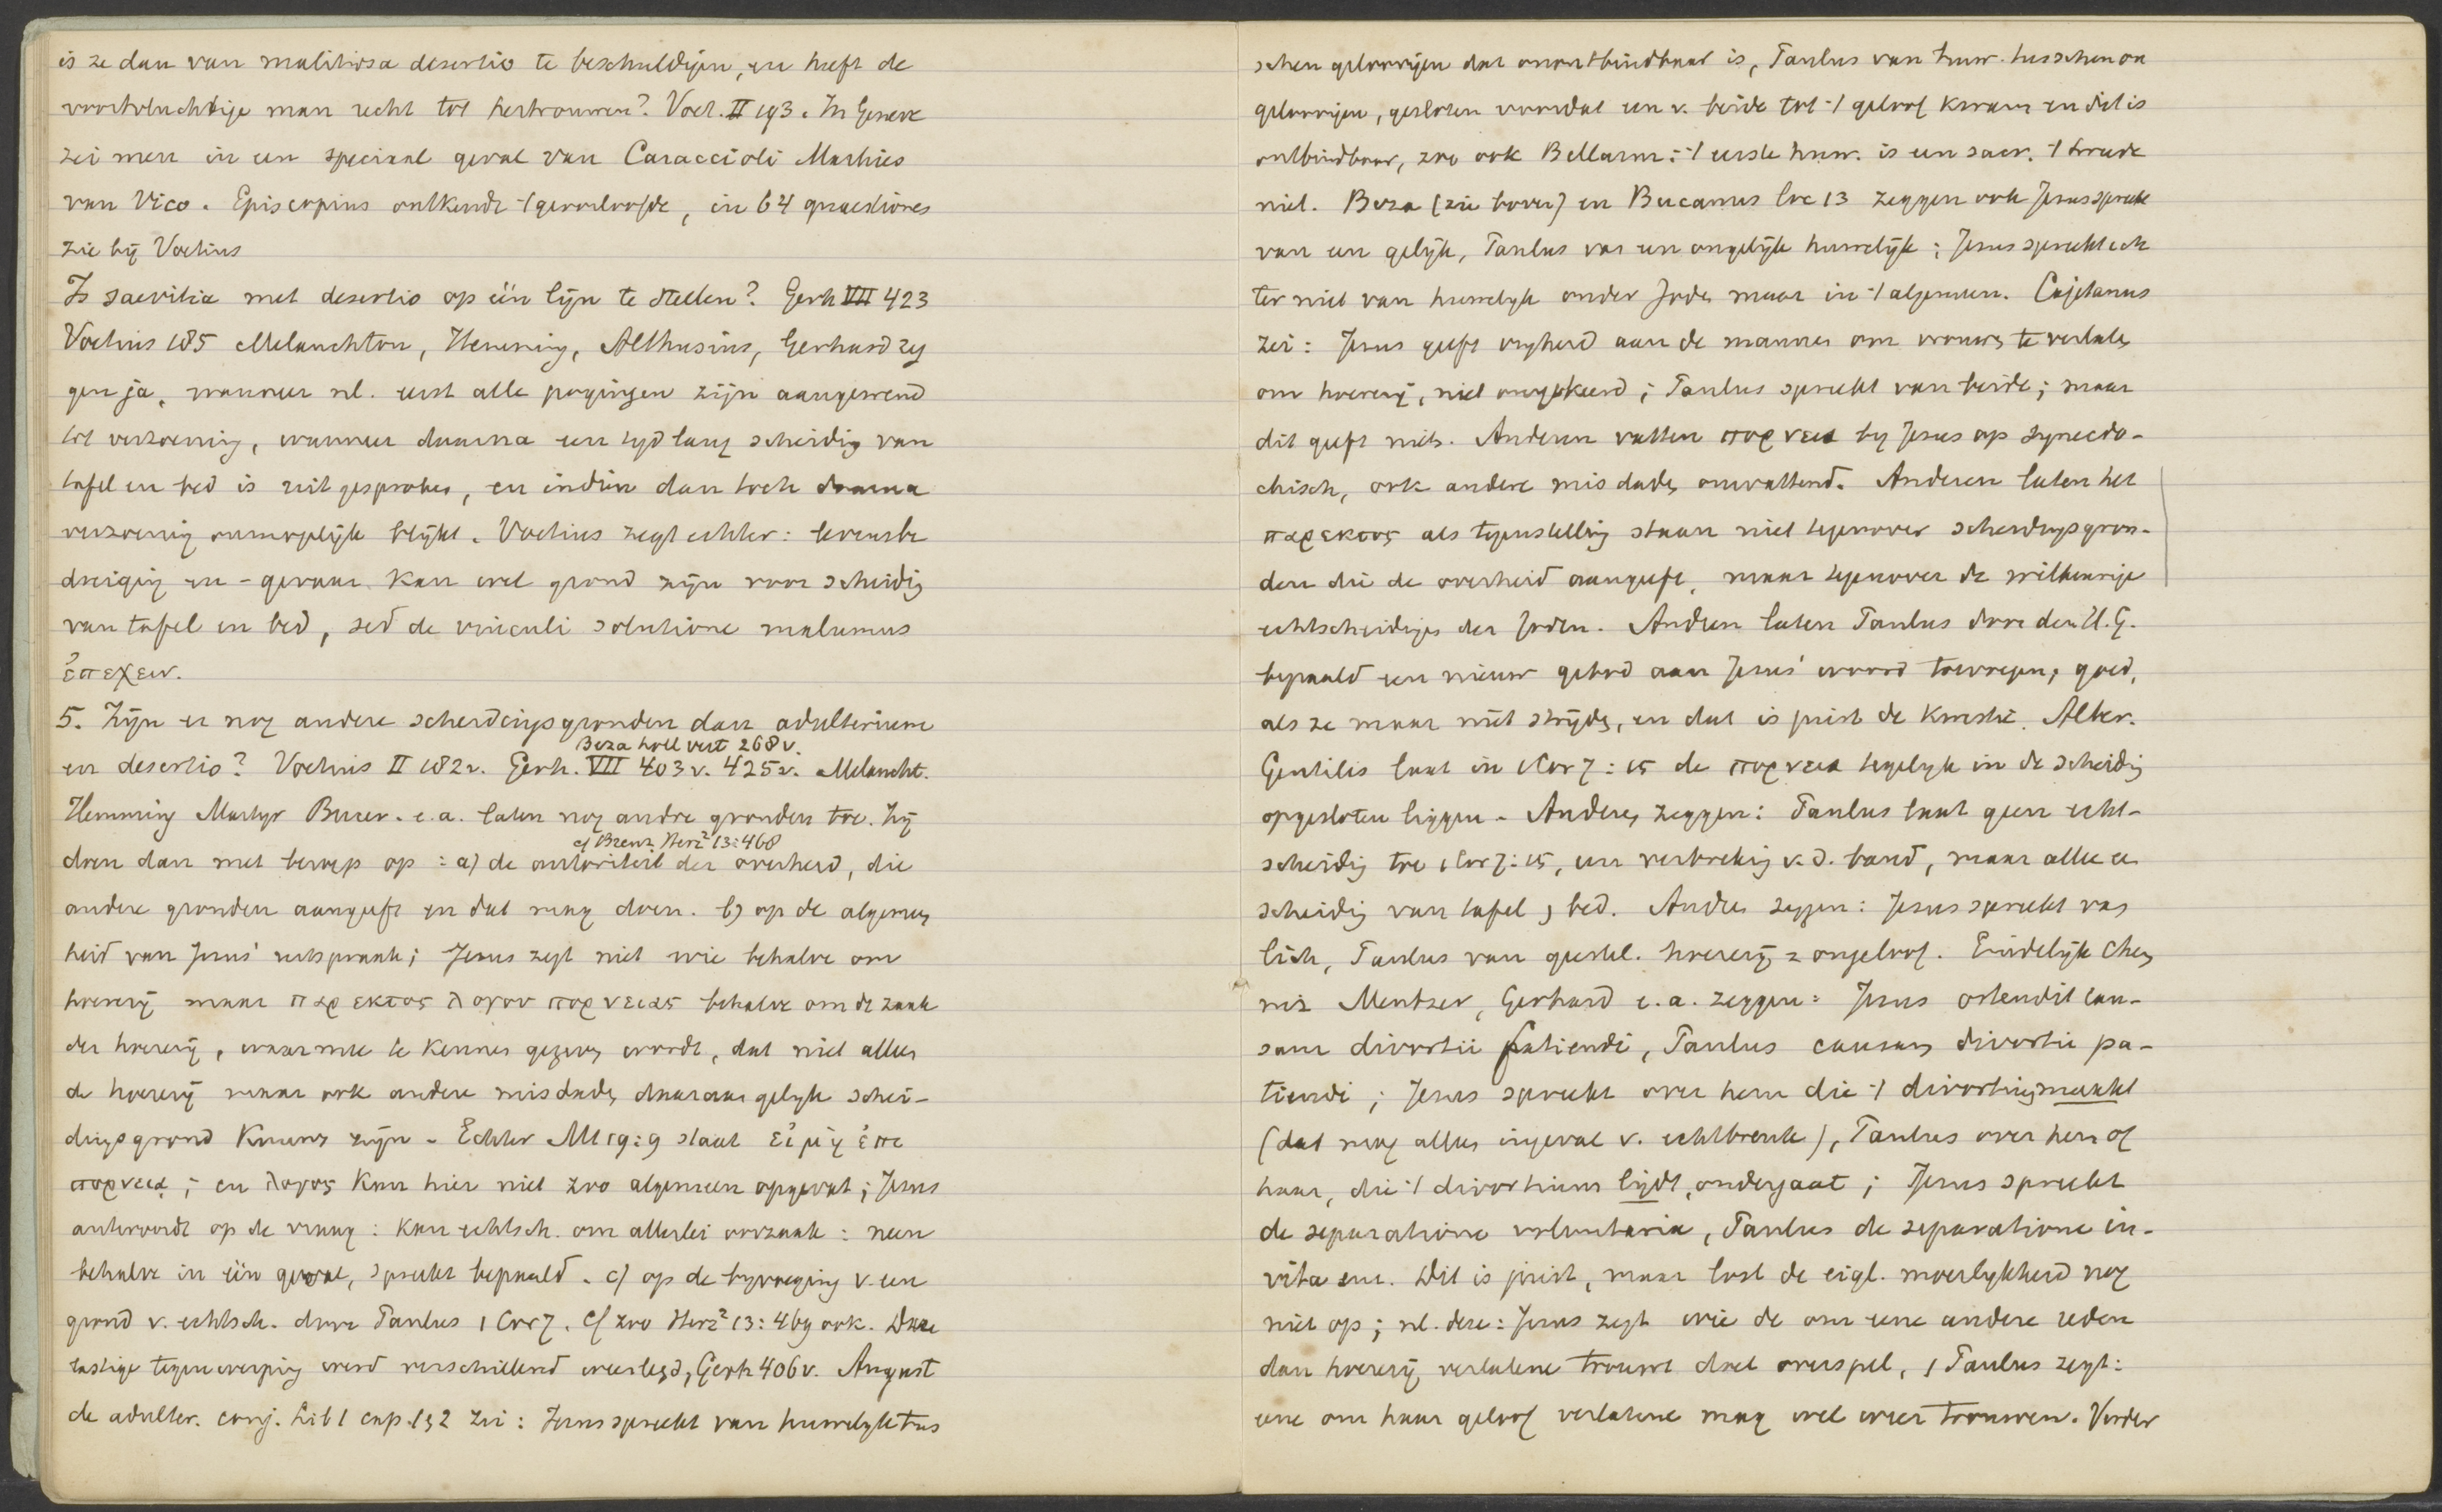 is ze dan van malitiosa desertio te beschuldigen, en heeft de
voortvluchtige man recht tot hertrouwen? Voet. II 193. In Geneve
zei men in een speciaal geval van Caraccioli Markies
van Vico. Episcopius ontkende 't geoorloofde, in 64 quaestiones
zie bij Voetius
Is saevitia met desertio op één lijn te stellen? Gerh VII 423
Voetius 185 Melanchton, Hemming, Althusius, Gerhard zeg
gen ja, wanneer nl. eerst alle pogingen zijn aangewend
tot verzoening, wanneer daarna een tyd lang scheidig van
tafel en bed is uitgesproken, en indien dan toch daarna
verzoenig onmogelijk blijkt. Voetius zegt echter: levensbe
dreigig en -gevaar kan wel grond zijn voor scheidig
van tafel en bed, sed de vinculi solutione malumus
ἐπεχειν.
5. Zijn er nog andere scheidingsgronden dan adulterium
Beza holl vert 268 v.
en desertio? Voetius II 182v. Gerh. VII 403 v. 425v. Melancht.
Hemming Martyr Bucer. e.a. laten nog andre gronden toe. Zij
cf Brenz Herz² 13:468
doen dan met beroep op : a) de autoriteit der overheid, die
andere gronden aangeeft en dat mag doen. b) op de algemeen
heid van Jezus' uitspraak; Jezus zegt niet wie behalve om
hoererij maar παρεκτος λογου πορνειας behalve om de zaak
der hoererij, waarmee te kennen gegeven wordt, dat niet alleen
de hoererij maar ook andere misdade, daaraan gelijk schei-
dingsgrond kunnen zijn - Echter Mt 19:9 staat εἰ μὴ ἐπι
πορνειᾳ; en λογος kan hier niet zoo algemeen opgevat; Jezus
antwoordt op de vraag: kan echtsch. om allerlei oorzaak : neen
behalve in één geval, spreekt bepaald. c) op de byvoeging v. een
grond v. echtsch. door Paulus 1 Cor 7. Cf zoo Herz² 13:469 ook. Deze
lastige tegenwerping werd verschillend weerlegd, Gerh 406v. August
de adulter. conj. Lib 1 cap. 1 & 2 zei : Jezus spreekt van huwelyk tus
schen geloovigen dat onontbindbaar is, Paulus van huw. tusschen on
geloovigen, gesloten voordat een v. beide tot 't geloof kwam en dit is
ontbindbaar, zoo ook Bellarm: 't eerste huw. is een sacr. 't tweede
niet. Beza (zie boven) en Bucanus loc 13 zeggen ook Jezus spreekt
van een gelijk, Paulus van een ongelijk huwelijk; Jezus spreekt ech
ter niet van huwelyk onder Joden maar in 't algemeen. Cajetanus
zei: Jezus geeft vryheid aan de mannen om vrouwen te verlaten
om hoererij, niet omgekeerd; Paulus spreekt van beide; maar
dit geeft niets. Anderen vatten πορνεια by Jezus op synecdo-
chisch, ook andere misdaden omvattend. Anderen laten het
παρεκτος als tegenstelling staan niet tegenover scheidingsgron-
den die de overheid aangeeft, maar tegenover de willkeurige
echtscheidigen der Joden. Anderen laten Paulus door den H.G.
bepaald een nieuw gebod aan Jezus' woord toevoegen; goed,
als ze maar niet strijden, en dat is juist de kwestie. Alber.
Gentilis laat in 1 Cor 7:15 de πορνεια tegelyk in de scheidig
opgesloten liggen - Anderen zeggen: Paulus laat geen echt-
scheidig toe 1 Cor 7:15, een verbrekig v. d. band, maar alleen
scheidig van tafel & bed. Andere zeggen: Jezus spreekt van
lich, Paulus van geestel. hoererij = ongeloof. Eindelijk Chem
niz Mentzer, Gerhard e.a. zeggen: Jesus ostendit cau-
sam divortii faciendi, Paulus causam divortii pa-
tiendi; Jezus spreekt over hem die 't divortium maakt
(dat mag alleen ingeval v. echtbreuk), Paulus over hem of
haar, die 't divortium lijdt, ondergaat; Jezus spreekt
de separatione voluntaria, Paulus de separatione in-
vita enz. Dit is juist, maar lost de eigl. moeilykheid nog
niet op; nl. deze: Jezus zegt wie de om eene andere reden
dan hoererij verlatene trouwt doet overspel, & Paulus zegt:
eene om haar geloof verlatene mag wel weer trouwen. Verder